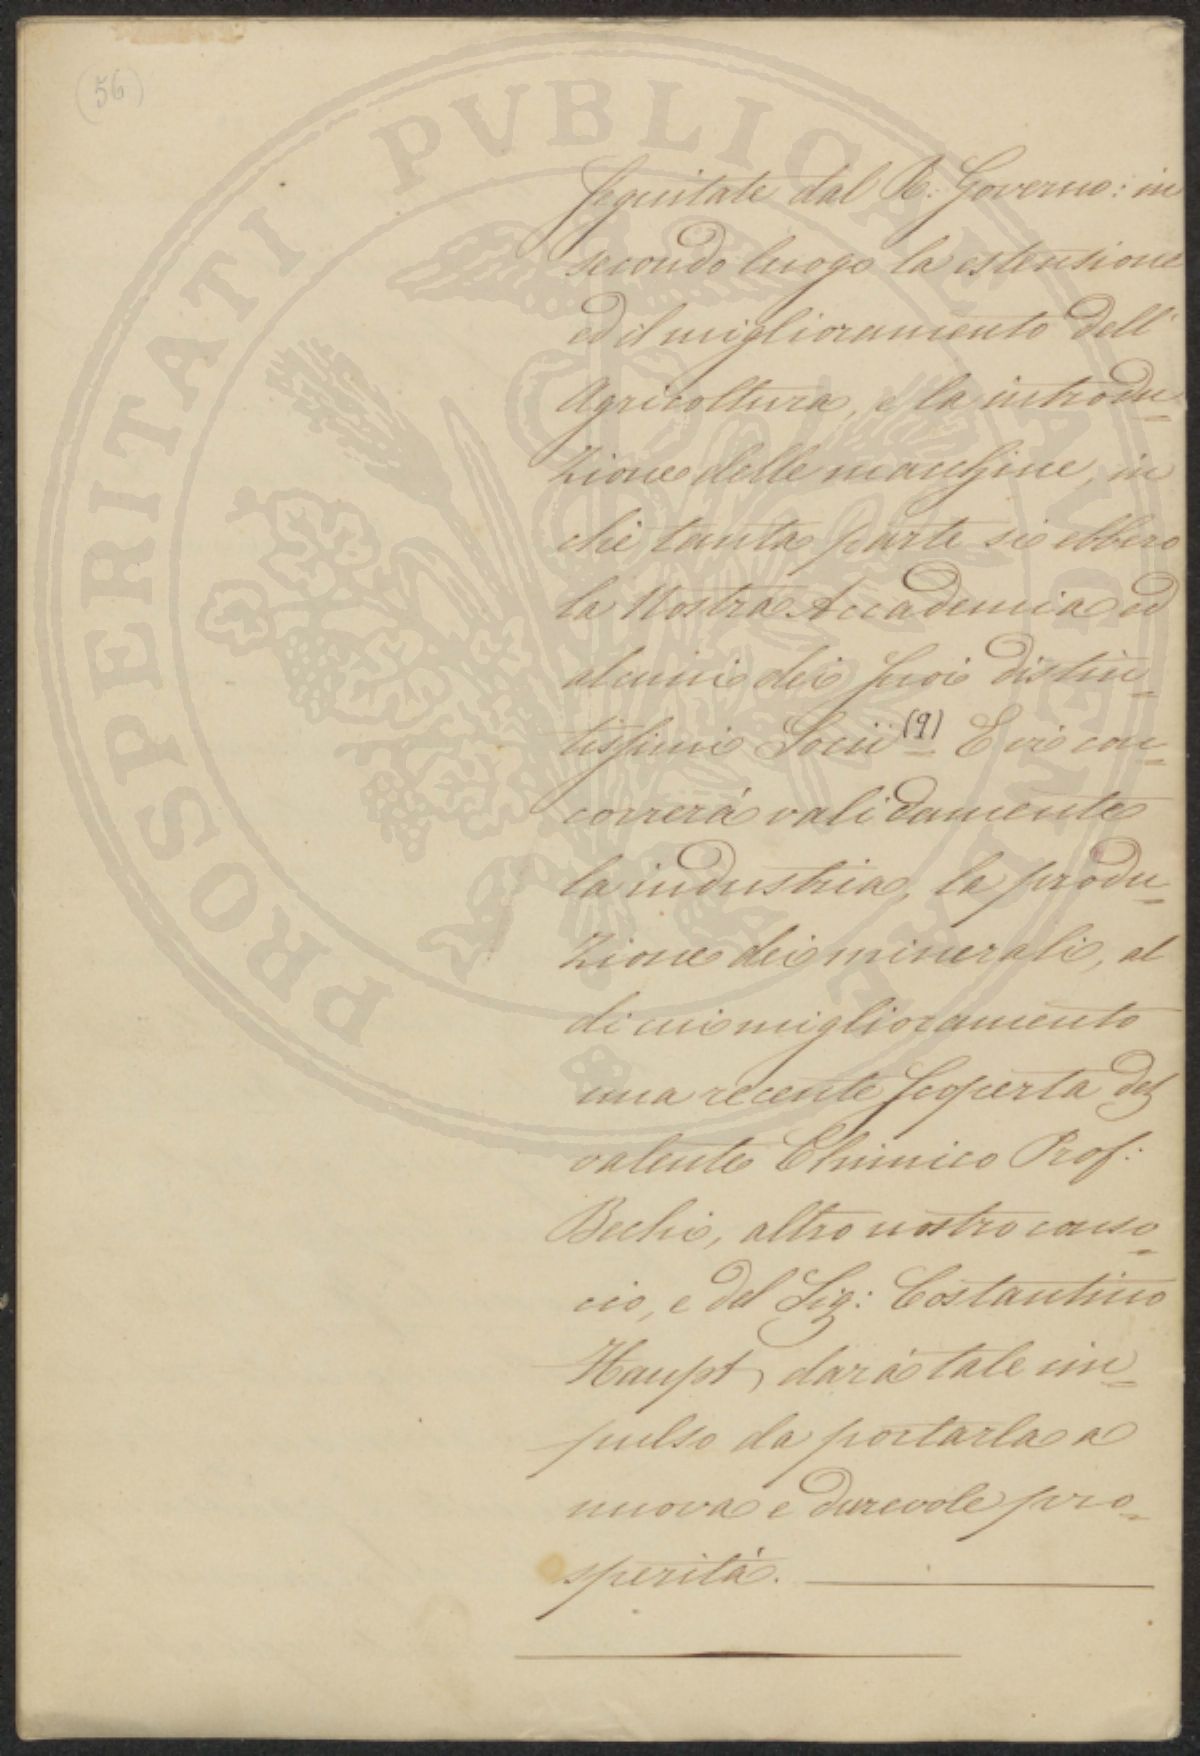 (56)
PROSPERITATI PVBLICAE AVGENDAE
seguitate dal R: Governo: in
secondo luogo la estensione
ed il miglioramento dell'
Agricoltura, e la introdu=
zione delle macchine, in
che tanta parte si ebbero
la Nostra Accademia ed
alcuni dei suoi distin=
tissimi Socii (9) E vi con=
correrà validamente
la industria, la produ=
zione dei minerali, al
di cui miglioramento
una recente scoperta del
valente Chimico Prof:
Bechi, altro nostro conso=
cio, e del Sig: Costantino
Haupt, darà tale im=
pulso da portarla a
nuova e durevole pro=
sperità.